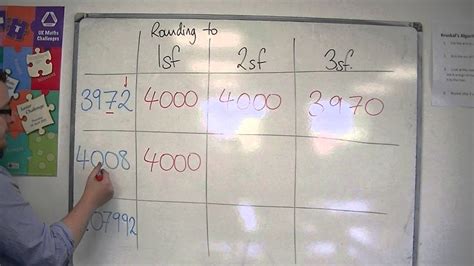 UK Maths
Challenges
Rounding to
1sf 2sf 3sf.
3972 4000 4000 3970
4008 4000
07992
Kruskal's Algori